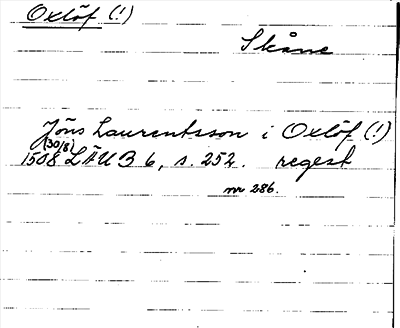 Oxlöf (!)
Skåne
Jöns Laurentsson i Oxlöf (!)
(30/8)
1508 LÄU B 6, s. 252. regest
nr 286.